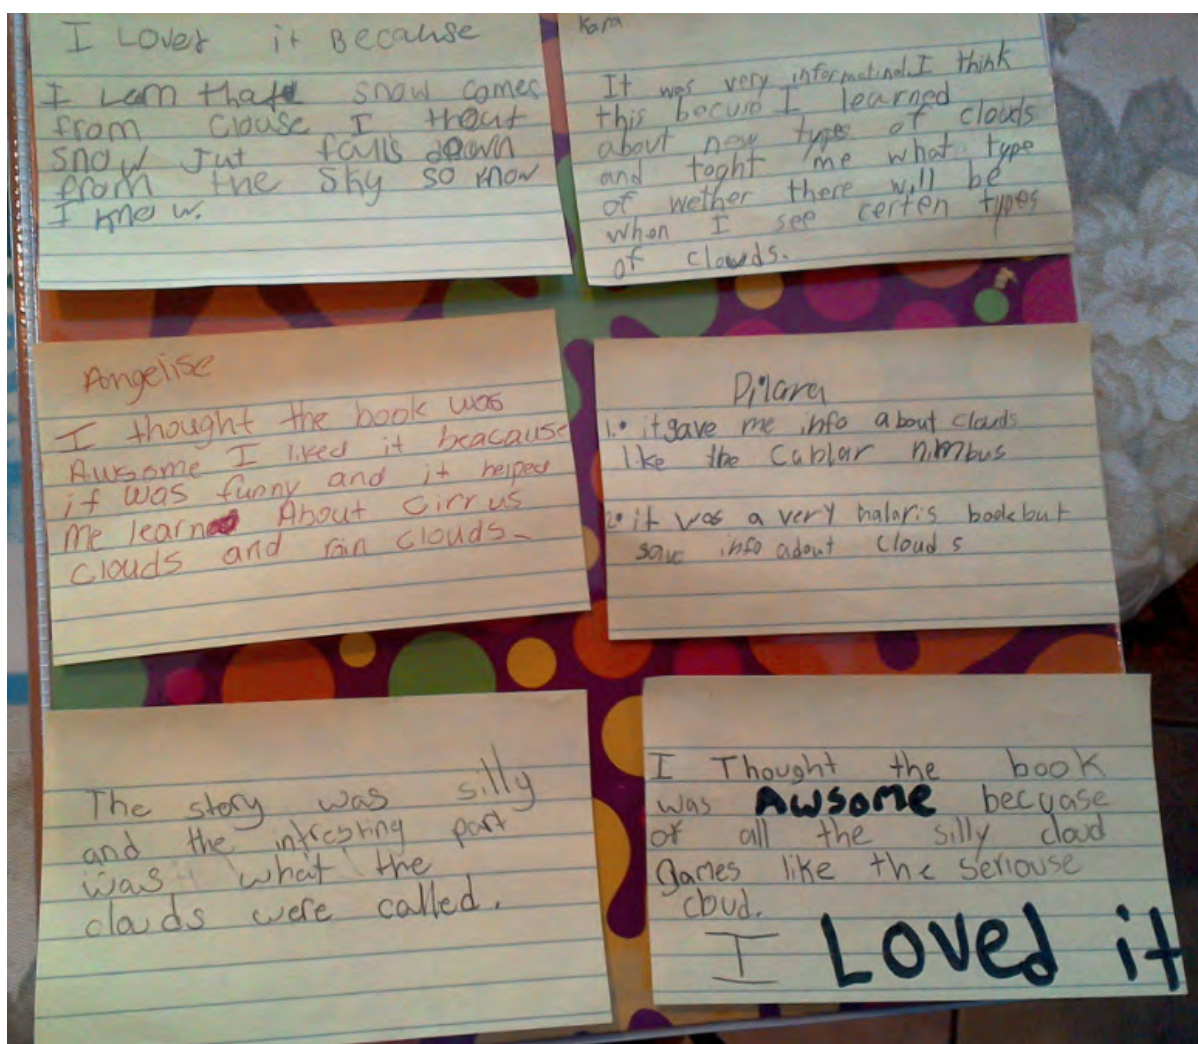 I Loved it Because
I Lern that snow comes
from Clouse I thout
snow Jut falls down
from the Sky so know
I know.
Kara
It was very informatinal. I think
this becuse I learned
about new types of clouds
and toght me what type
of wether there will be
when I see certen types
of clowds.
Angelise
I thought the book was
Awsome I liked it beacause
it was funny and it helped
me learn About Cirrus
clouds and rain clouds.
Dilara
1. it gave me info about clouds
like the Cublar nimbus
2. it was a very halaris book but
info adout clouds
The story was silly
and the intresting part
was what the
clouds were called.
I Thought the book
was AWsome becuase
of all the silly cloud
Games like the seriouse
cloud.
I Loved it